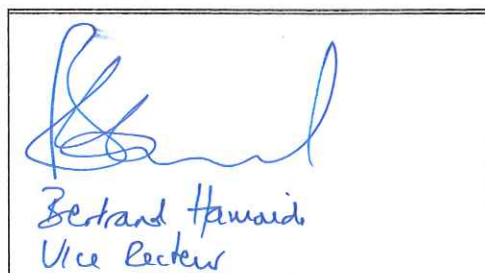 Bertrand Hamaide
Vice Recteur